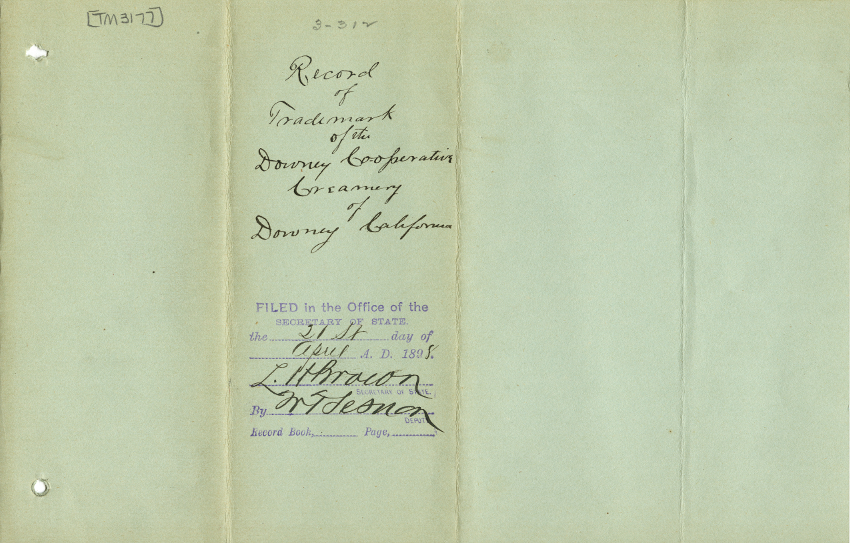 [TM3177]
3-312
Record
of
Trademark
of the
Downey Cooperative
Creamery
of
Downey California
FILED in the Office of the
SECRETARY OF STATE.
the 21st day of
April A. D. 1898.
L. H Brown
SECRETARY OF STATE.
By
DEPUTY
Record Book, Page,